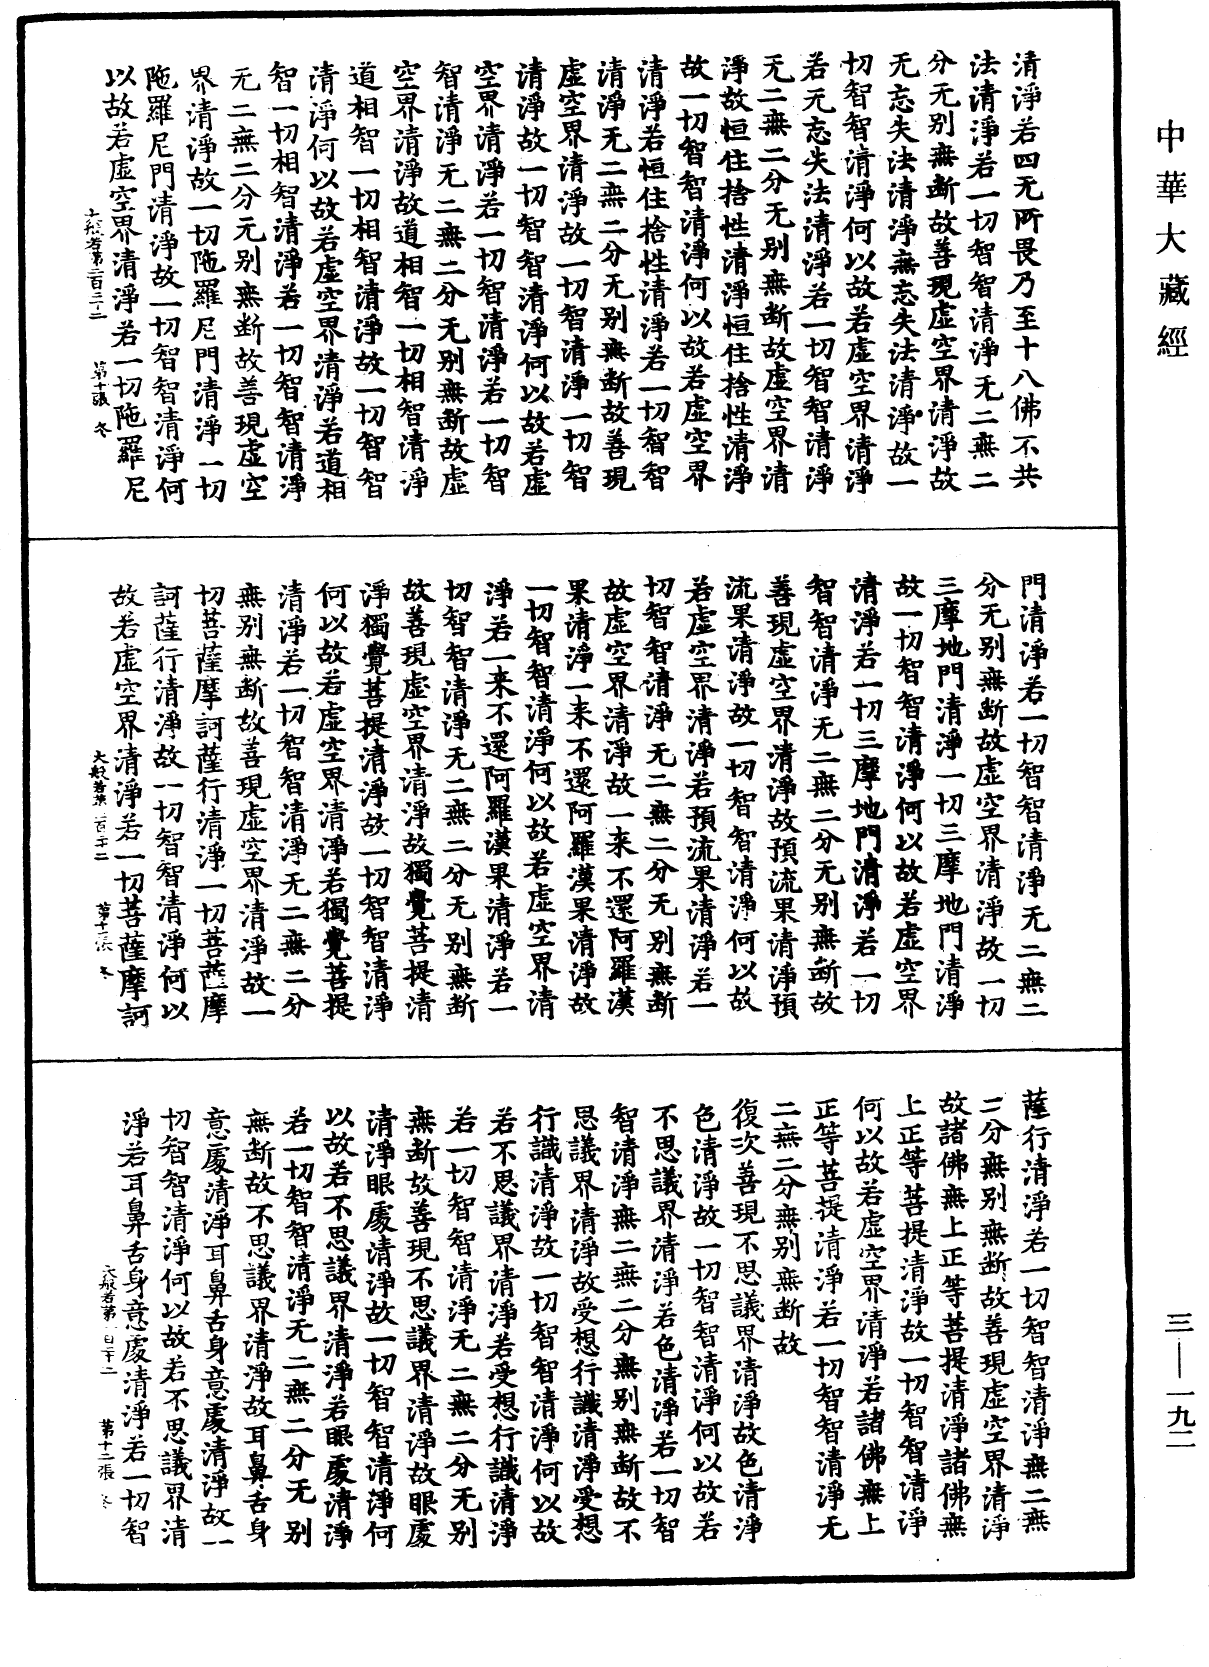 中華大藏經
清淨若四无所畏乃至十八佛不共
法清淨若一切智智清淨无二無二
分无别無断故善現虚空界清淨故
无忘失法清淨無忘失法清淨故一
切智智清淨何以故若虚空界清淨
若无忘失法清淨若一切智智清淨
无二無二分无别無断故虚空界清
淨故恒住捨性清淨恒住捨性清淨
故一切智智清淨何以故若虚空界
清淨若恒住捨性清淨若一切智智
清淨无二無二分无别無断故善現
虚空界清淨故一切智清淨一切智
清淨故一切智智清淨何以故若虚
空界清淨若一切智清淨若一切智
智清淨无二無二分无别無断故虚
空界清淨故道相智一切相智清淨
道相智一切相智清淨故一切智智
清淨何以故若虚空界清淨若道相
智一切相智清淨若一切智智清淨
无二無二分无别無断故善現虚空
界清淨故一切陁羅尼門清淨一切
陁羅尼門清淨故一切智智清淨何
以故若虚空界清淨若一切陁羅尼
大般若第二百三二 第十張 冬
門清淨若一切智智清淨无二無二
分无别無断故虚空界清淨故一切
三摩地門清淨一切三摩地門清淨
故一切智智清淨何以故若虚空界
清淨若一切三摩地門清淨若一切
智智清淨无二無二分无别無断故
善現虚空界清淨故預流果清淨預
流果清淨故一切智智清淨何以故
若虚空界清淨若預流果清淨若一
切智智清淨无二無二分无别無断
故虚空界清淨故一来不還阿羅漢
果清淨一来不還阿羅漢果清淨故
一切智智清淨何以故若虚空界清
淨若一来不還阿羅漢果清淨若一
切智智清淨无二無二分无别無断
故善現虚空界清淨故獨覺菩提清
淨獨覺菩提清淨故一切智智清淨
何以故若虚空界清淨若獨覺菩提
清淨若一切智智清淨无二無二分
無别無断故善現虚空界清淨故一
切菩薩摩訶薩行清淨一切菩薩摩
訶薩行清淨故一切智智清淨何以
故若虚空界清淨若一切菩薩摩訶
大般若第二百三十二 第十一張 冬
薩行清淨若一切智智清淨無二無
二分無别無断故善現虚空界清淨
故諸佛無上正等菩提清淨諸佛無
上正等菩提清淨故一切智智清淨
何以故若虚空界清淨若諸佛無上
正等菩提清淨若一切智智清淨无
二無二分無别無断故
復次善現不思議界清淨故色清淨
色清淨故一切智智清淨何以故若
不思議界清淨若色清淨若一切智
智清淨無二無二分無别無断故不
思議界清淨故受想行識清淨受想
行識清淨故一切智智清淨何以故
若不思議界清淨若受想行識清淨
若一切智智清淨无二無二分无别
無断故善現不思議界清淨故眼處
清淨眼處清淨故一切智智清淨何
以故若不思議界清淨若眼處清淨
若一切智智清淨无二無二分无别
無断故不思議界清淨故耳鼻舌身
意處清淨耳鼻舌身意處清淨故一
切智智清淨何以故若不思議界清
淨若耳鼻舌身意處清淨若一切智
大般若第二百三十二 第十二張 冬
三—一九二